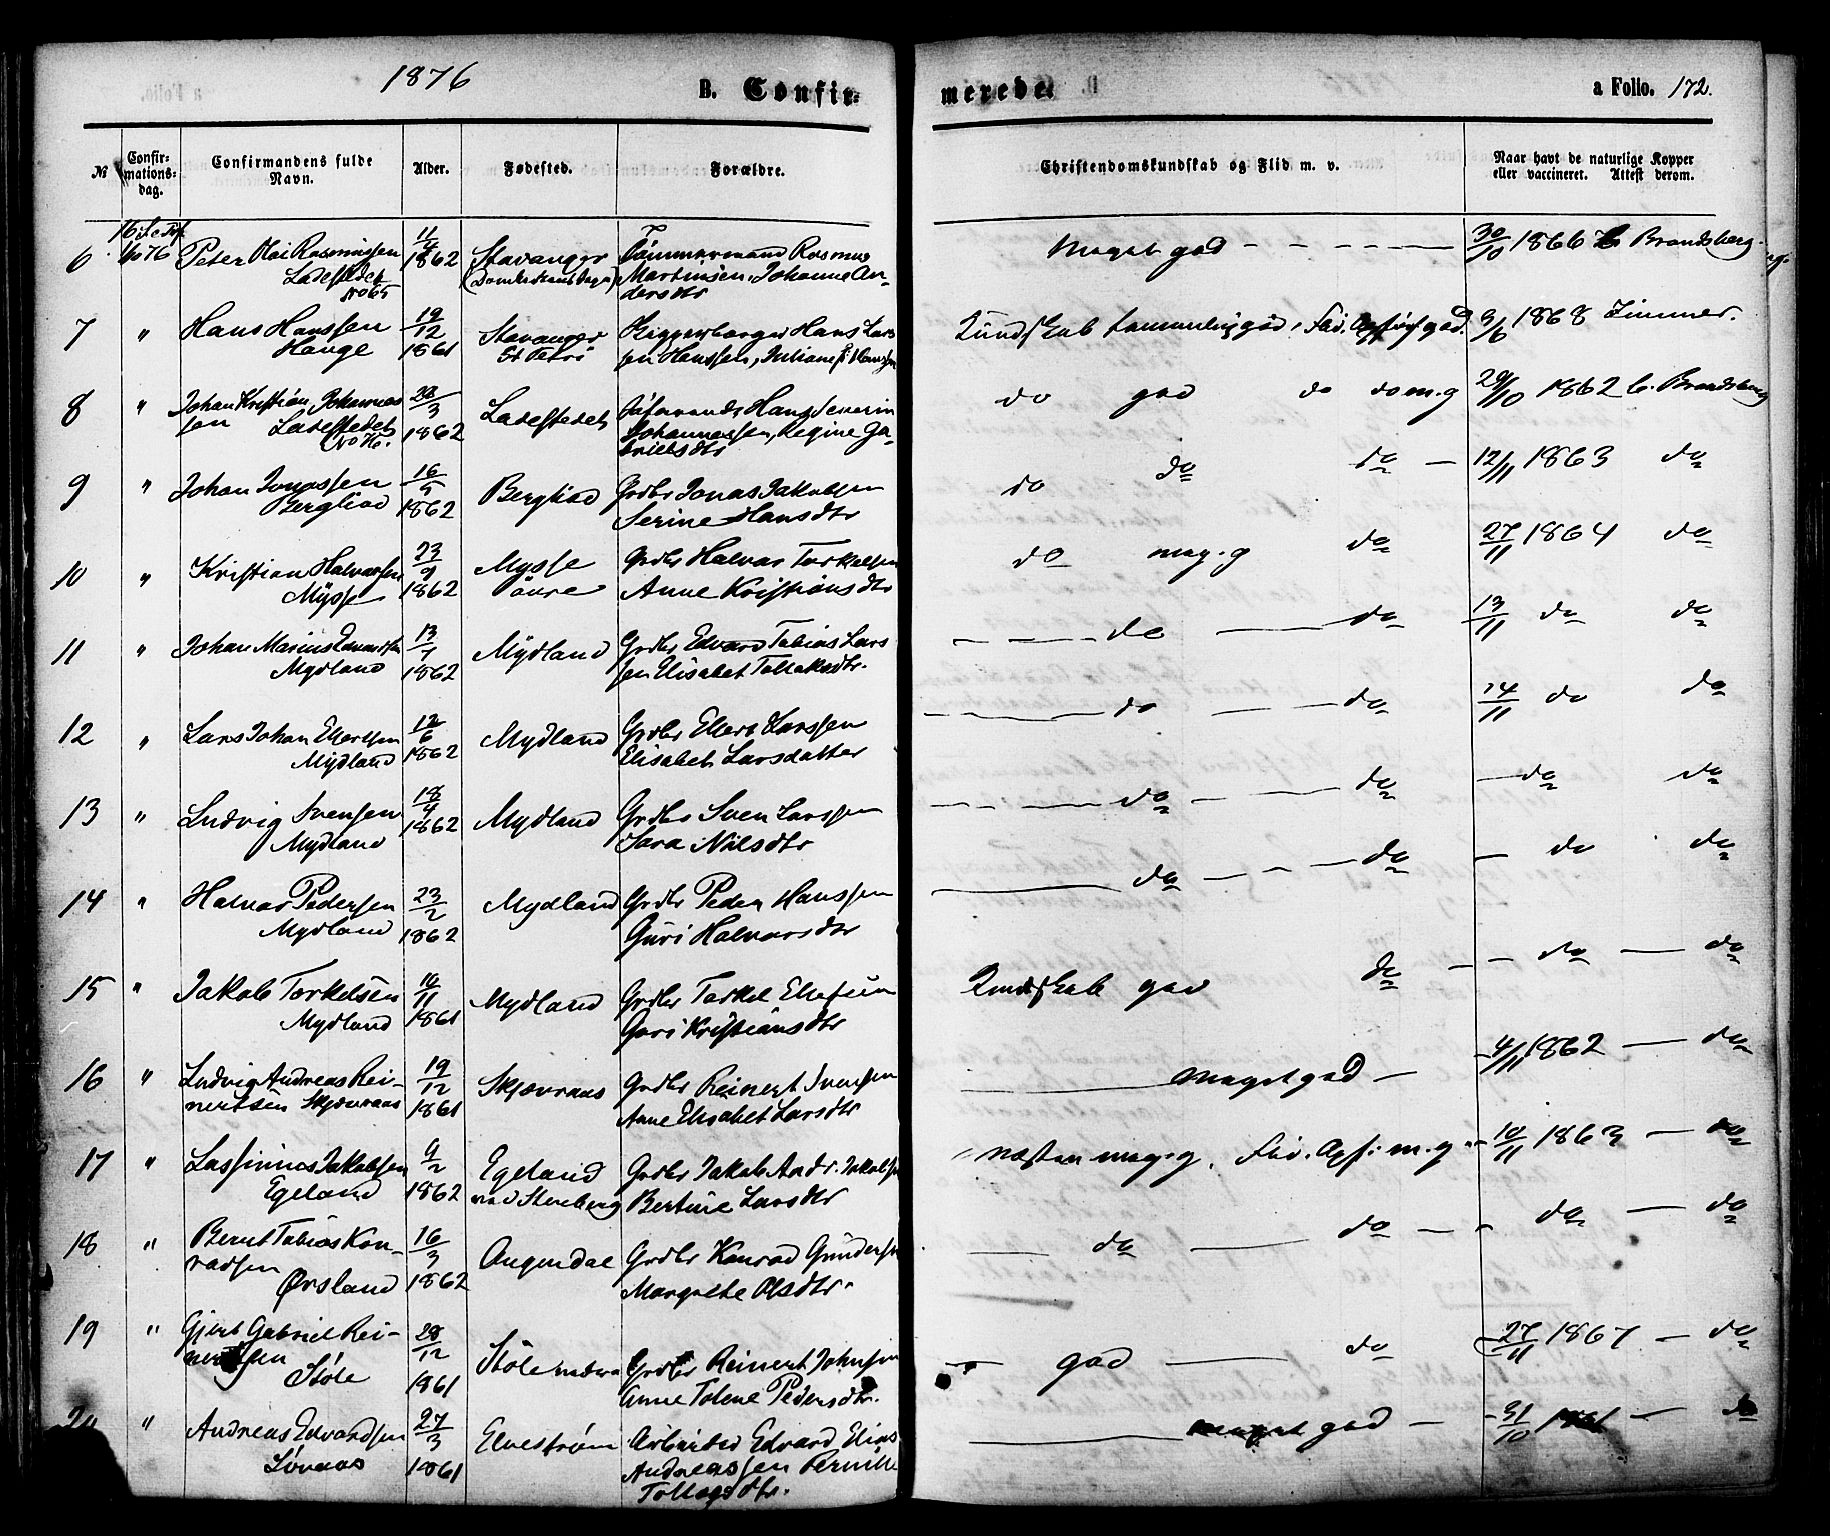 1876 B. Confir- merede. a Folio. 172.
№ Confir-mations-dag. Confirmandens fulde Navn. Alder. Fødested. Forældre. Christendomskundskab og Flid m. v. Naar havt de naturlige Kopper eller vaccineret. Attest derom.
6 1/10 76 Peter Rasmussen 11/4 1862 Stavanger Tømmermand Rasmus Meget god - - - 30/10 1866 Brandsberg
Ladestedet (Domkirkens Sogn) Martinsen, Johanne An-
No 65 dersdtr
7 " Hans Hanssen 19/12 1861 Stavanger Hans Lars Kundskab temmelig god. 9/6 1868 Zimmer.
Hauge St Petri sen Hanssen, Juliane
8 " Johan Kristian Johannes 1862 Ladestedet Hans Severin do god do do m.g 29/10 1862 C. Brandsberg
sen Ladestedet Johannessen, Regine Ga-
brielsdtr
9 " Johan Jonassen 16/5 1862 Bergliod Grdbr Jonas Jakobsen do do do — 12/11 1863 do
Bergliod Serine Hansdtr
10 " Kristian Halvorsen 23/9 1862 Mysse Grdbr Halvor Torkelsen do meg. g do 27/11 1864 do
Mysse øvre Anne Kristiansdtr
11 " Johan Marius Edvardsen 13/7 1862 Mydland Grdbr Edvard Tobias Lars — do — do 13/11 do do
Mydland sen Elisabet Tollaksdtr.
12 " Lars Johan Ellertsen 12/6 1862 Mydland Grdbr Ellert Larssen — do — do 14/11 do do
Mydland Elisabet Larsdatter
13 " Ludvig Svensen 18/4 1862 Mydland Grdbr Sven Larssen — do — do — do do
Mydland Sara Nilsdtr
14 " Halvor Pedersen 23/2 1862 Mydland Grdbr Peder Hanssen — do — do — do do
Mydland Guri Halvorsdtr
15 " Jakob Torkelsen 10/11 1861 Mydland Grdbr Torkel Kundskab god do — do — do
Mydland Guri Kristiansdtr
16 " Ludvig Andreas Rei- 19/12 1861 Skjævraas Grdbr Reinert Svensen — Meget god — 4/11 1862 — do
nertsen Skjævraas Anne Elisabet Larsdtr
17 " Lassinius Jakobsen 9/2 1862 Egeland Grdbr Jakob Andr. Jakobsen næsten meg. g. Flid. Opf: m.g 10/11 1863 — do
Egeland ved Steneberg Bertine Larsdtr
18 " Bernt Tobias Kon- 16/3 1862 Augendal Grdbr Konrad Gundersen — do — do — do — do
radsen Margrete Olsdtr.
Ørsland
19 " Gjert Gabriel Rei- 28/12 1861 Støle nedre Grdbr Reinert Johnsen — god — do 27/11 1867 — do
nertsen Anne Tolene Pedersdtr.
Støle
20 " Andreas Edvardsen 27/3 1861 Elvestrøm Arbeider Edvard Elias — meget god — 31/10 1861 — do
Løvaas Andreassen Pernille
Tollagsdtr.